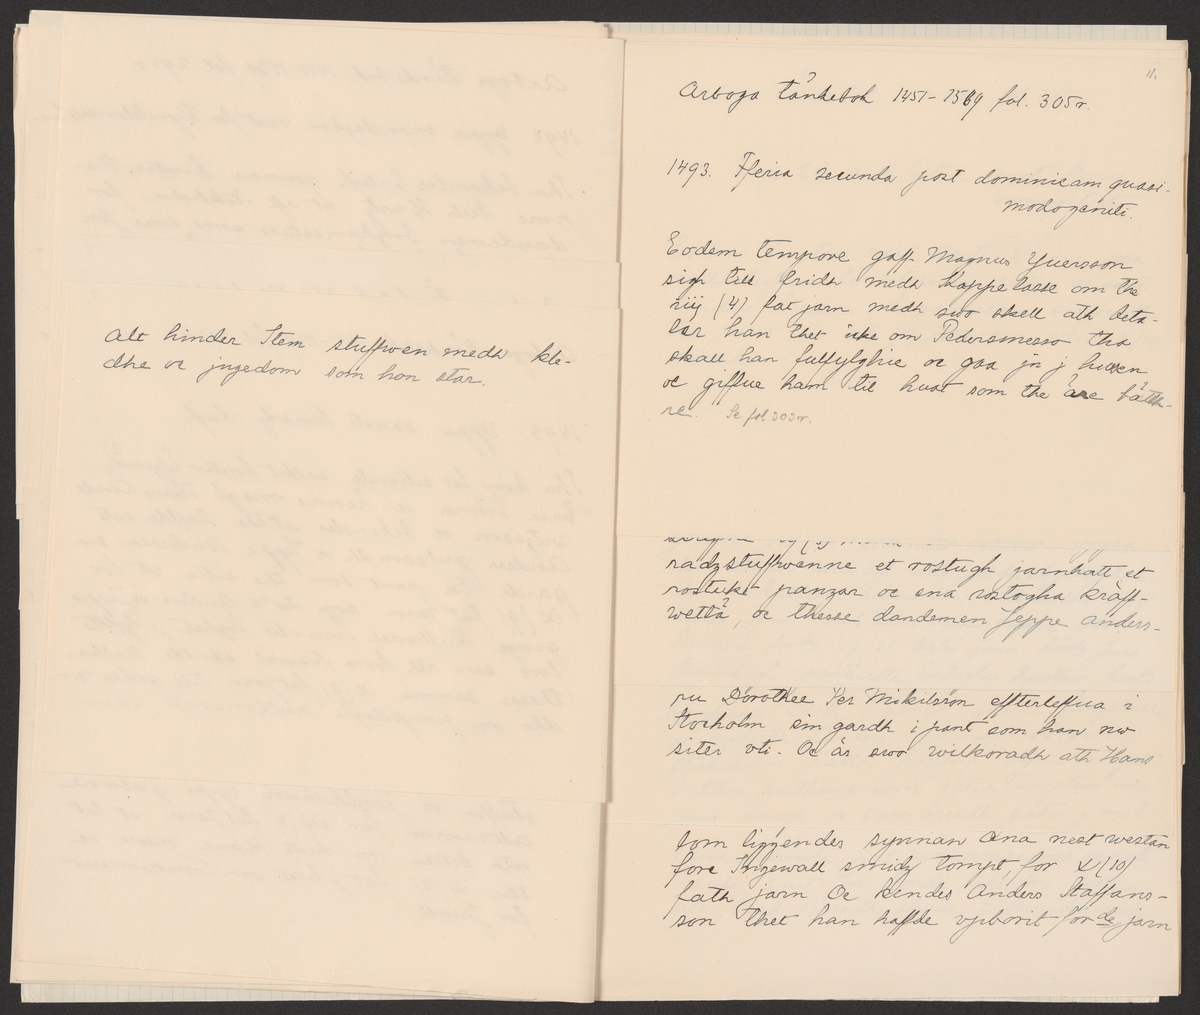 alt hinder Item stuffwen medh kle-
dhe oc jngedom som hon star.
11.
Arboga tänkebok 1451-1569 fol. 305r.
1493. Fferia secunda post dominicam quasi-
modogeniti.
Eodem tempore gaff Magnus Yuersson
sigh till fridh medh Skoppe lasse om the
iiij (4) fat jarn medh swo skell ath beta-
ler han thet icke om Pedersmesso tha
skall han fulfylghie oc gaa jn j husen
oc giffue ham til huat som the äre bätth-
re. Se fol 303r.
radzstuffwenne et rostugh jarnhatt et
rostuket panzar oc ena rostogha kräff-
wetta, oc thesse dandemen Jeppe anders-
ru Dorothee Per Mikilsson effterleffua i
Stocholm em gardh i pant som han nw
siter vti. Oc är swo wilkoradh ath Hans
som liggendes synnan Ana nest westan
fore Ingewall smidz tompt, for x (10)
fath jarn Oc kendes Anders Staffans-
son thet han haffde vpborit for de jarn